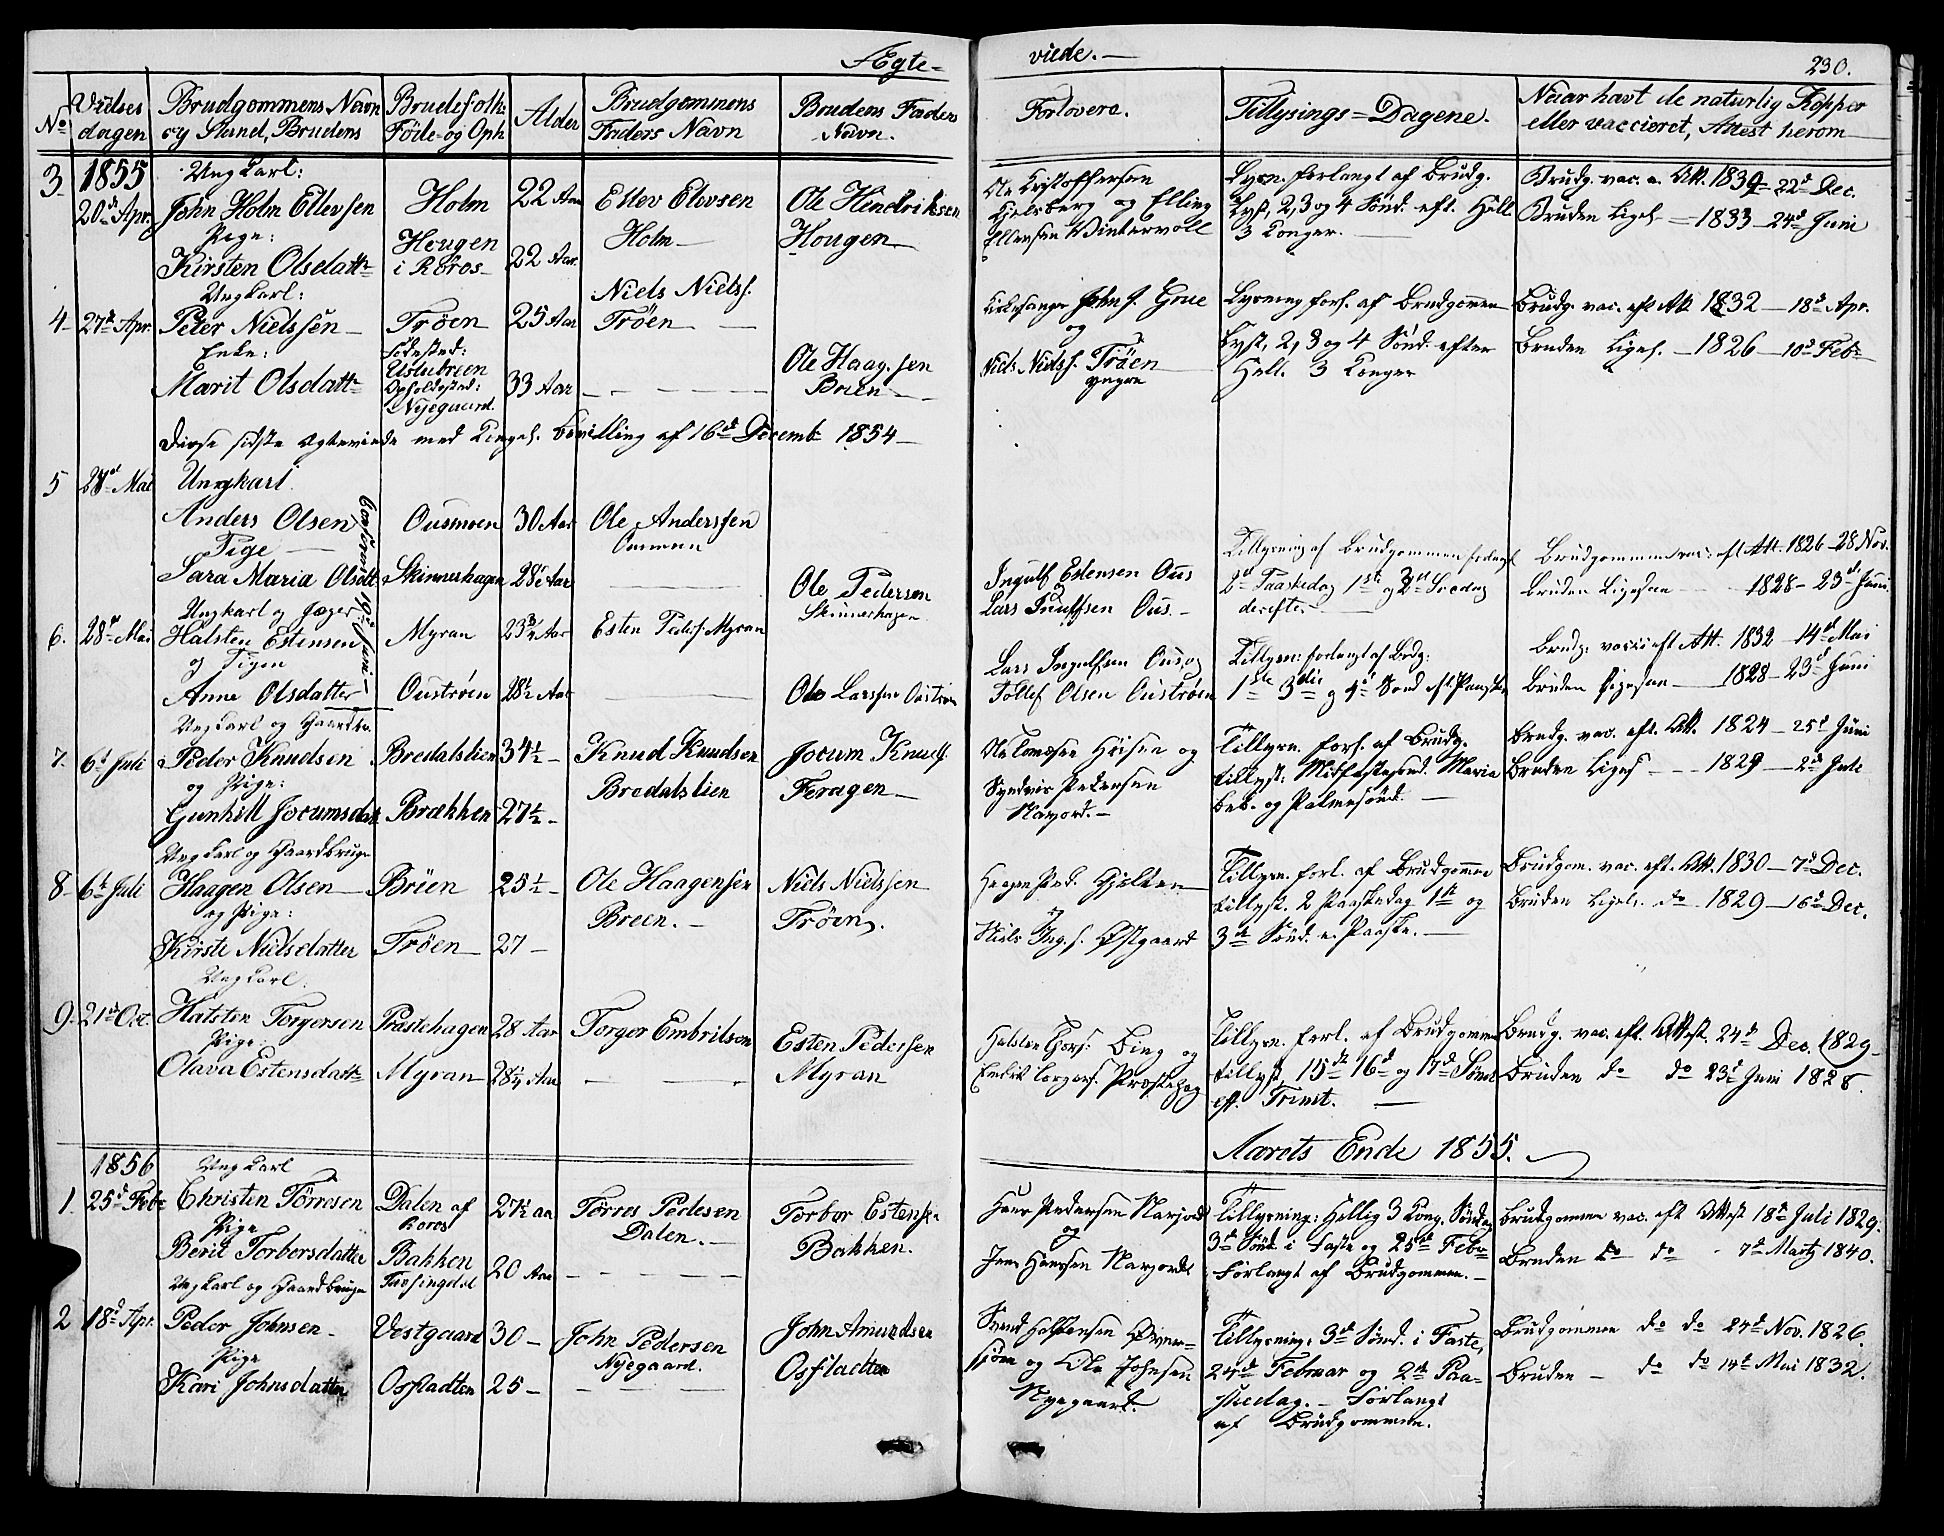 Ægte-
viede.-
230.
No
Vielses dagen
Brudgommens Navn og Stand, Brudens
Brudefolk: Føde- og Oph
Alder
Brudgommens Faders Navn
Brudens Faders Navn.
Forlovere.
Tillysings=Dagene.
Naar havt de naturlig Kopper eller vaccieret, Attest herom
3
1855
20de Apr.
Ungkarl:
John Holm Ellevsen
Pige:
Kirsten Olsdattr
Holm
Hougen
i Røros
22 Aar
22 Aar
Ellev Elevsen
Holm
Ole Hendriksen
Hougen
Ole Kristoffersen
Kjelsberg og Elling
Ellevsen Wintervoll
Lysn. forlangt af Brudg.
Lyst, 2, 3 og 4 Sønd. eft. Hell
3 Konger.
Brudg. vac. e. Att. 1839 22d Dec.
Bruden Liges 1833 24d Juni
4
27de Apr.
Ungkarl:
Peter Nielssen
Enke:
Marit Olsdattr
Trøen
Fødested:
Opholdssted:
Nyegaard.
25 Aar
33 Aar
Niels Nielss.
Trøen
Ole Haag.sen
Brien
Kirkesanger John J. Grue
og
Niels Nielss. Trøen
yngre
Lysning forl. af Brudgomen
Lyst, 2, 3 og 4 Sønd. efter
Hell. 3 Konger
Brudg. vac. eft Att 1832 18d Apr.
Bruden Liges. 1826 10d Febr
Disse sidste Egteviede med Kongel. Bevilling af 16de Decembr 1854
5
28de Mai
Ungkarl
Anders Olsen
Pige
Sara Maria Olsdttr
Ousmoen
Skinnerhagen
30 Aar
28½ Aar
Ole Anderssen
Ousmoen
Ole Pedersen
Skinnerhagen
Ingulf Estensen Ous
Lars Ingulfsen Ous.
Tillysning af Brudgommen forlangt
2d Paaskedag 1ste og 2den Søndag
derefter
Brudgommen vac: eft Att. 1826 28 Nov.
Bruden Ligesaa 1828 23de Juni
6.
28de Mai
Ungkarl og Jæger
Halsten Estensen
og Pigen
Anne Olsdatter
Myran
Oustrøen
23¾ Aar
28½ Aar
Esten Peders. Myran
Ole Larssen Oustrøen
Lars Ingulfsen Ous og
Tollef Olsen Oustrøen
Tillysn: forlangt af Brdg:
1ste 3die og 4de Sønd eft Paaske
Brudg: vacci eft Att. 1832 14de Mai
Bruden Ligesaa 1828 23d Juni
7.
6te Juli
Ungkarl og Gaardbr.
Peder Knudsen
og Pige:
Gunhild Jocumsdat
Bredalslien
Brækken
34½
27½
Knud Knudsen
Bredalslien
Jocum Knuds.
Feragen
Ole Tomæsen
og
Syndvis Pedersen
Narjord.
Tillysn. forl. af Brudg.
tillyst: Midfastesønd. Maria
beb. og Palmesønd.
Brudg. vac. eft. Att. 1824 25d Juni
Bruden Liges 1829 2d Juli
8
6te Juli
Ungkarl og Gaardbruger
Haagen Olsen
og Pige:
Kirste Nielsdatter
Brien
Trøen
25½
27
Ole Haagensen
Breen.
Niels Nielssen
Trøen.
og
Niels Ing.s. Østgaard
Tillysn. forl. af Brudgommen
tillyst. 2 Paaskedag 1ste og
3de Sønd. e. Paaske.
Brudgom. vac. eft. Att. 1830 7d Dec.
Bruden Liges. do 1829 16d Dec.
9
21de Oct.
Ungkarl.
Halsten Torgersen
Pige:
Olava Estensdattr
Præstehagen
Myran
28 Aar
28¼ Aar
Torger Embritsen
Esten Pedersen
Myran
Halsten Bing og
Embrit Torgers. Præstehag
Tillysn. forl. af Brudgommen
tillyst, 15de 16de og 17de Sønd
eft. Trinit.
Brudg. vac. eft. Attest. 24de Dec. 1829
Bruden do do 23d Juni 1828.
Aarets Ende 1855.
1856
1.
25de Febr
Ungkarl
Christen Tørresen
Pige
Berit Torbersdatter
Dalen af
Roros
Bakken
27½ aar
20 Aar
Tørres Pedesen
Dalen.
Torber Estens.
Bakken.
Hans Pedersen Narjord
og
Jens Hanssen Narjordet
Tillysning: Hellig 3 Kong. Søndag
3de Sønd i Faste og 25de Febr
Forlangt af Brudgommen.
Brudgommen vac. eft Attest 18de Juli 1829.
Bruden do do 7de Marts 1840.
2
18de Apr.
Ungkarl og Gaardbruger
Peder Johnsen
Pige
Kari Johnsdatter
Vestgaard
Osfladten
30
25
John Pedersen
Nyegaard.
John Amundsen
Osfladten
Halstensen
og Ole Johnsen
Nyegaard.
Tillysning: 3de Sønd. i Faste,
24de Februar og 2de Paa-
skedag. Forlangt
af Brudgommen.
Brudgommen do do 24de Nov. 1826.
Bruden do do 14de Mai 1832.